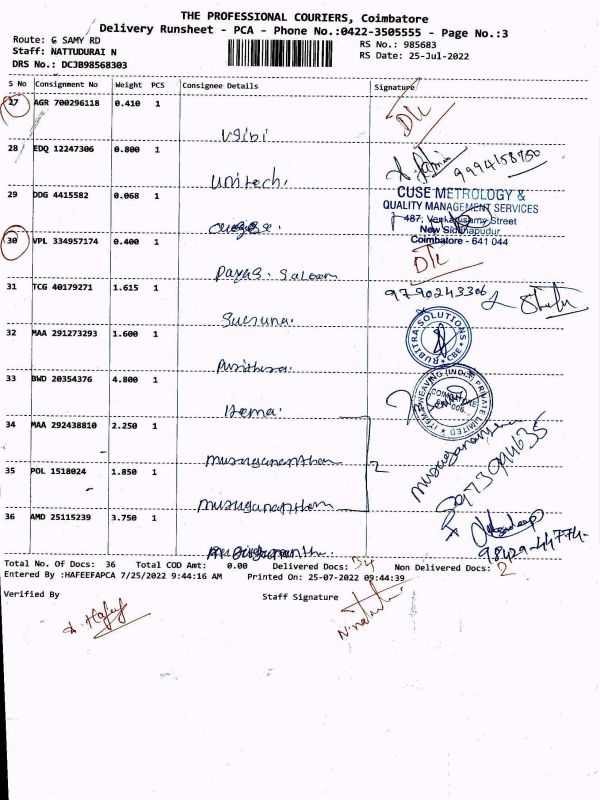 THE PROFESSIONAL COURIERS, Coimbatore
Delivery Runsheet - PCA - Phone No.:0422-3505555 - Page No.:3
Route: G SAMY RD
RS No.: 985683
Staff: NATTUDURAI N
RS Date: 25-Jul-2022
DRS No.: DCJB98568303
S No Consignment No Weight PCS Consignee Details Signature
27 AGR 700296118 0.410 1
28 EDQ 12247306 0.800 1
Unitech.
9994158750
29 DDG 4415582 0.068 1
CUSE METROLOGY &
QUALITY MANAGEMENT SERVICES
487, Venkatasamy Street
New Sidhapudur
Coimbatore - 641 044
30 VPL 334957174 0.400 1
31 TCG 40179271 1.615 1
9790243306
Suguna.
32 MAA 291273293 1.600 1
RUBITRA SOLUTIONS
CBE
33 BWD 20354376 4.800 1
Itema.
ITEMA WEAVING (INDIA) PRIVATE LIMITED
COIMBATORE
34 MAA 292438810 2.250 1
2
35 POL 1518024 1.850 1
36 AMD 25115239 3.750 1
98429-44774-
Total No. Of Docs: 36 Total COD Amt: 0.00 Delivered Docs: 34 Non Delivered Docs: 2
Entered By :HAFEEFAPCA 7/25/2022 9:44:16 AM Printed On: 25-07-2022 09:44:39
Verified By Staff Signature